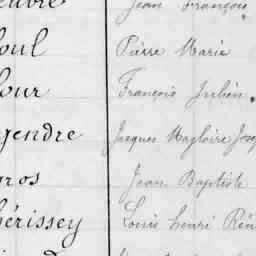 Jean François
oul Pierre Marie
our François Julien
gendre Jacques Magloire Jose
gros Jean Baptiste
hérissey Louis Henri René